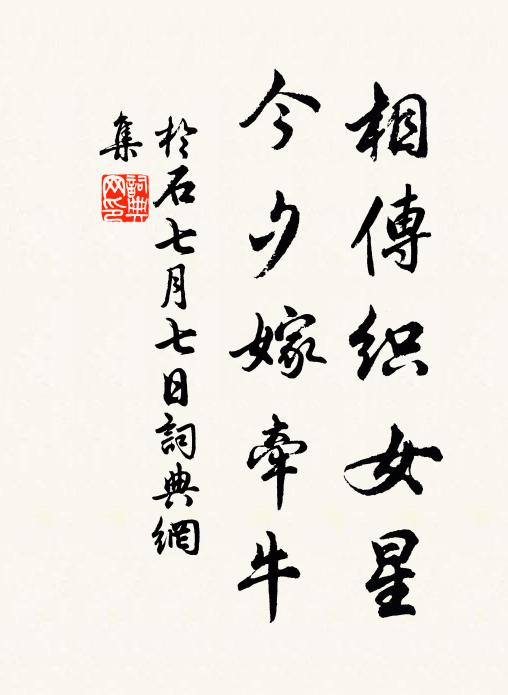 相傳織女星
今夕嫁牽牛
於石七月七日詞典網
集
詞典
网印